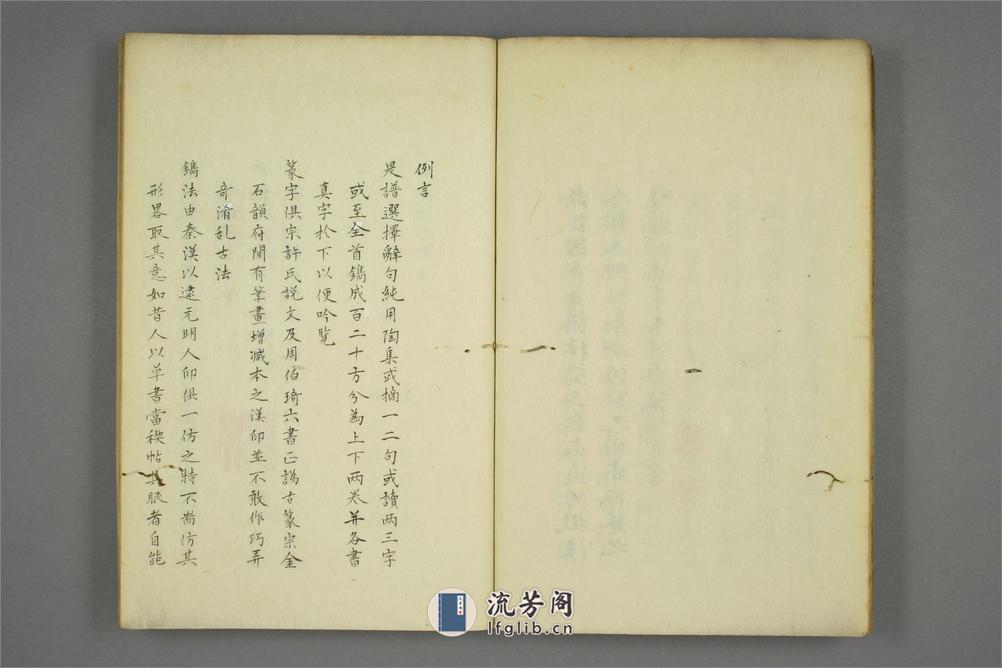 例言
是譜選擇辭句純用陶集或摘一二句或讀两三字
或至全首鐫成百二十方分為上下两卷并各書
真字於下以便吟覧
篆字俱宗許氏說文及周伯琦六書正譌古篆宗金
石韻府間有筆畫增减本之漢印並不敢作巧弄
奇淆乱古法
鐫法由秦漢以逮元明人印俱一仿之特不耑仿其
形畧取其意如昔人以草書當稧帖具眼者自能
流芳阁
lfglib.cn